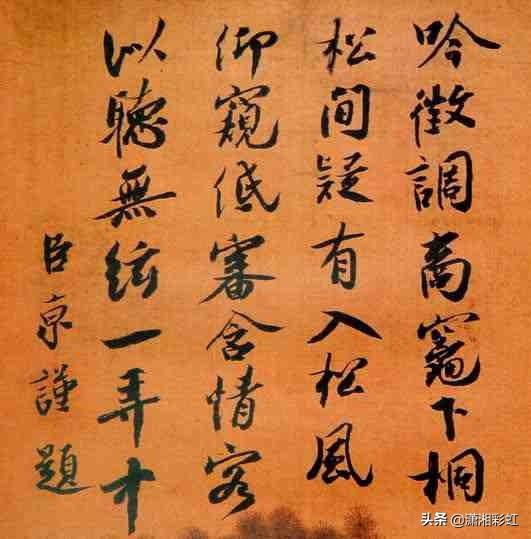 吟徵調商竈下桐
松間疑有入松風
仰窺低審含情客
似聽無絃一弄中
臣京謹題
头条 @潇湘彩虹